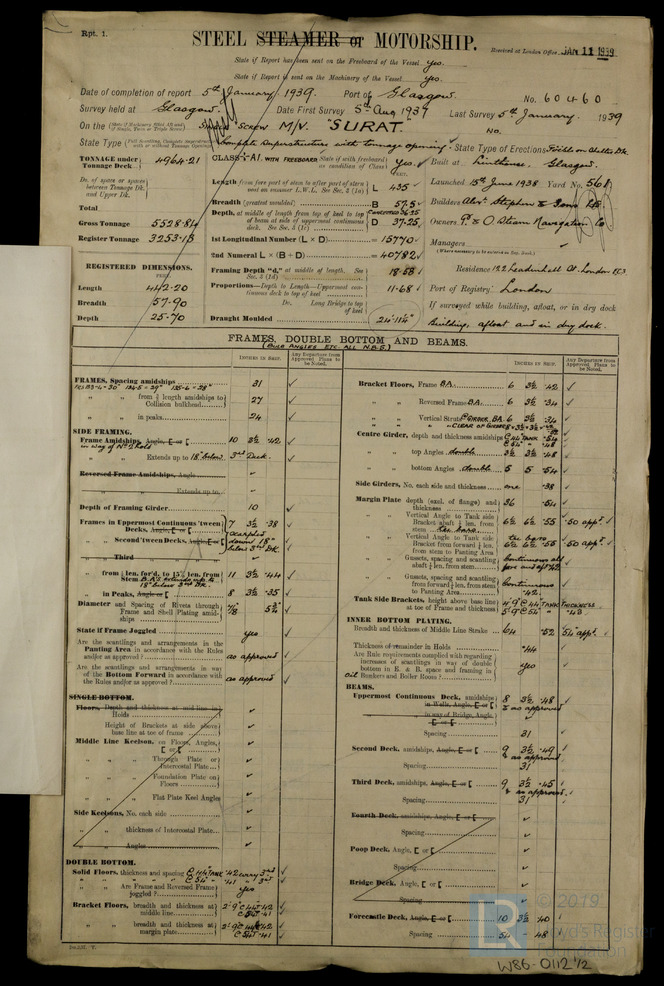 Rpt. 1.
STEEL STEAMER or MOTORSHIP.
Received at London Office JAN 11 1939
State if Report has been sent on the Freeboard of the Vessel yes.
State if Report is sent on the Machinery of the Vessel yes.
Date of completion of report 5th January 1939. Port of Glasgow. No. 60460
Survey held at Glasgow. Date First Survey 5th Aug 1937 Last Survey 5th January. 1939
On the (State if Machinery fitted Aft and if Single, Twin or Triple Screw) Screw M/V. "SURAT." No.
State Type Complete Superstructure with tonnage opening State Type of Erections
TONNAGE under Tonnage Deck 4964.21
Do. of space or spaces between Tonnage Dk. and Upper Dk.
Total
Gross Tonnage 5528.84
Register Tonnage 3253.13
REGISTERED DIMENSIONS.
FEET.
Length 442.20
Breadth 57.90
Depth 25.70
CLASS +A1. WITH FREEBOARD State if with freeboard as condition of Class yes.
Length from fore part of stem to after part of stern post on summer L.W.L. See Sec. 2 (1a) L 435
Breadth (greatest moulded) B 57.5
Depth, at middle of length from top of keel to top of beam at side of uppermost continuous deck. See Sec. 2 (1) D 37.25
1st Longitudinal Number (L × D) = 15770
2nd Numeral L × (B + D) = 40782
Framing Depth "d," at middle of length. See Sec. 3 (1d) 18.58
Proportions—Depth to Length—Uppermost continuous deck to top of keel 11.68
Do. Long Bridge to top of keel
Draught Moulded 24' 11¼"
Built at Linthouse, Glasgow.
Launched 15th June 1938 Yard No. 561
Builders Alexr. Stephen & Sons Ltd.
Owners P. & O Steam Navigation Co
Managers
(Where necessary to be entered in Reg. Book.)
Residence 122 Leadenhall St. London EC3
Port of Registry London
If surveyed while building, afloat, or in dry dock
Building, afloat and in dry dock.
FRAMES, DOUBLE BOTTOM AND BEAMS.
(BULB ANGLES ETC. ALL N.B.S.)
INCHES IN SHIP. Any Departure from Approved Plans to be Noted.
FRAMES, Spacing amidships 31
" " from ⅕ length amidships to Collision bulkhead 27
" " in peaks 24
SIDE FRAMING.
Frame Amidships, Angle, E or [ 10 3½ .42
in way of No 2 hold
" " Extends up to 18" below 3rd Deck.
Reversed Frame Amidships, Angle
" " Extends up to
Depth of Framing Girder 10
Frames in Uppermost Continuous 'tween Decks, Angle, E or [ 7 3½ .38
" Second 'tween Decks, Angle, E or [ scarphed down 18" below 3rd DK
" Third
" from ⅕ len. for'd. to 15% len. from Stem 11 3½ .44
" in Peaks, Angle or [ 8 3½ .35
Diameter and Spacing of Rivets through Frame and Shell Plating amidships ⅞
State if Frame Joggled yes
Are the scantlings and arrangements in the Panting Area in accordance with the Rules and/or as approved? as approved
Are the scantlings and arrangements in way of the Bottom Forward in accordance with the Rules and/or as approved? as approved
SINGLE BOTTOM.
Floors, Depth and thickness at mid-line in Holds
Height of Brackets at side above base line at toe of frame
Middle Line Keelson, on Floors, Angles, E or [
" " Through Plate or Intercostal Plate
" " Foundation Plate on Floors
" " Flat Plate Keel Angles
Side Keelsons, No. each side
" " thickness of Intercostal Plate
" " Angles
DOUBLE BOTTOM.
Solid Floors, thickness and spacing
" " Are Frame and Reversed Frame joggled? yes
Bracket Floors, breadth and thickness at middle line
" " breadth and thickness at margin plate
Bracket Floors, Frame B.A. 6 3½ .42
" " Reversed Frame B.A. 6 3½ .34
" " Vertical Struts 6 3½ .34
Centre Girder, depth and thickness amidships
" " top Angles double 3½ 3½ .48
" " bottom Angles double 5 5 .54
Side Girders, No. each side and thickness one .38
Margin Plate depth (excl. of flange) and thickness 36 .54
" " Vertical Angle to Tank side Bracket abaft ¼ len. from stem 6½ 6½ .55 .50 appd.
" " Vertical Angle to Tank side Bracket from forward ¼ len. from stem to Panting Area 6½ 6½ .55 .50 appd.
" " Gussets, spacing and scantling abaft ¼ len. from stem Continuous
" " Gussets, spacing and scantling from forward ¼ len. from stem to Panting Area Continuous .42
Tank Side Brackets, height above base line at toe of Frame and thickness
INNER BOTTOM PLATING.
Breadth and thickness of Middle Line Strake 64 .52 .54 appd.
Thickness of remainder in Holds .44
Are Rule requirements complied with regarding increases of scantlings in way of double bottom in E. & B. space and framing in oil Bunkers and Boiler Room? yes
BEAMS.
Uppermost Continuous Deck, amidships 8 3½ .48
in Wells, Angle, E or [ & as approved
in way of Bridge, Angle, E or [
Spacing 31
Second Deck, amidships, Angle, E or [ 9 3½ .49
& as approved
Spacing 31
Third Deck, amidships, Angle, E or [ 9 3½ .45
& as approved
Spacing 31
Fourth Deck, amidships, Angle, E or [
Spacing
Poop Deck, Angle, E or [
Spacing
Bridge Deck, Angle, E or [
Spacing
Forecastle Deck, Angle, E or [ 10 3½ .40
Spacing
© 2019
Lloyd's Register Foundation
W86-0112 1/2